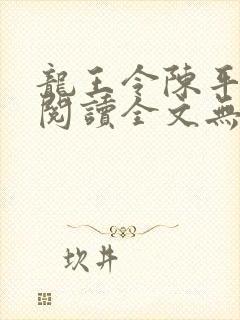 龍王令陳平
閱讀全文無
坎井